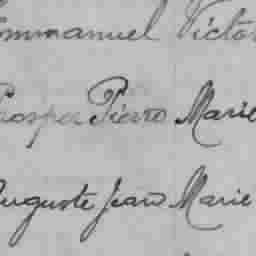 Emmanuel Victor
Prosper Pierre Marie
Auguste Jean Marie